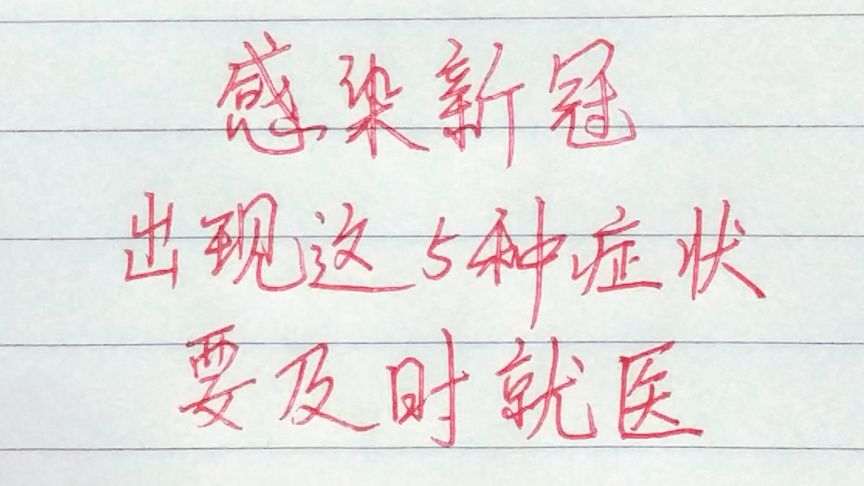 感染新冠
出现这5种症状
要及时就医